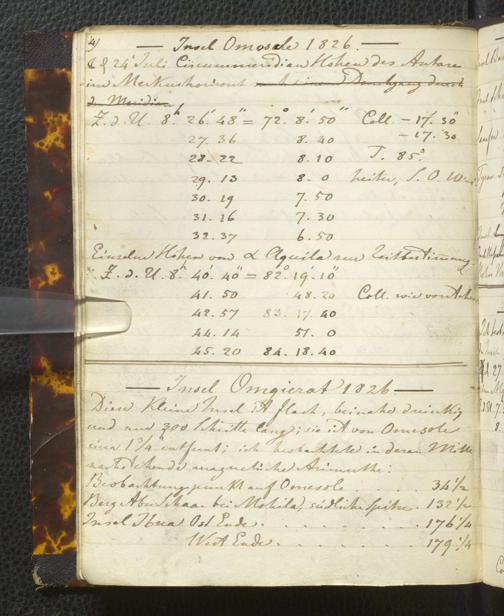 4)
— Insel Omosele 1826. —
24 Juli Circummeridian Höhen des Antare
im Merkurhorizont
d. Meridian
Z. d. U. 8." 26.' 48" = 72.° 8.' 50" Coll. – 17.' 30"
27. 36 8. 40 – 17. 30
28. 22 8. 10 T. 85°
29. 13 8. 0 heiter, S. O. Wind
30. 19 7. 50
31. 26 7. 30
32. 37 6. 50
Einzelne Höhen von α Aquila zur Zeitbestimmung.
Z. d. U. 8." 40.' 40" = 82.° 19.' 10"
41. 50 48. 20 Coll. wie vor
42. 57 83. 17. 40
44. 14 51. 0
45. 20 84. 18. 40
— Insel Omgierat 1826 —
Diese Kleine Insel ist flach, beinahe dreieckig
und nur 300 Schritte lang; sie ist von Omosele
circa 1 1/4 entfernt; ich beobachtete in deren Mitte
nachstehende magnetische Azimuthe:
Beobachtungspunkt auf Omosele . . 34 1/2
Berg Abu Schaar bei Mohila, südliche Spitze . 132 1/2
Insel Ibua Ost Ende . . . . . . 176 1/4
West Ende . . . . . . 179 1/4